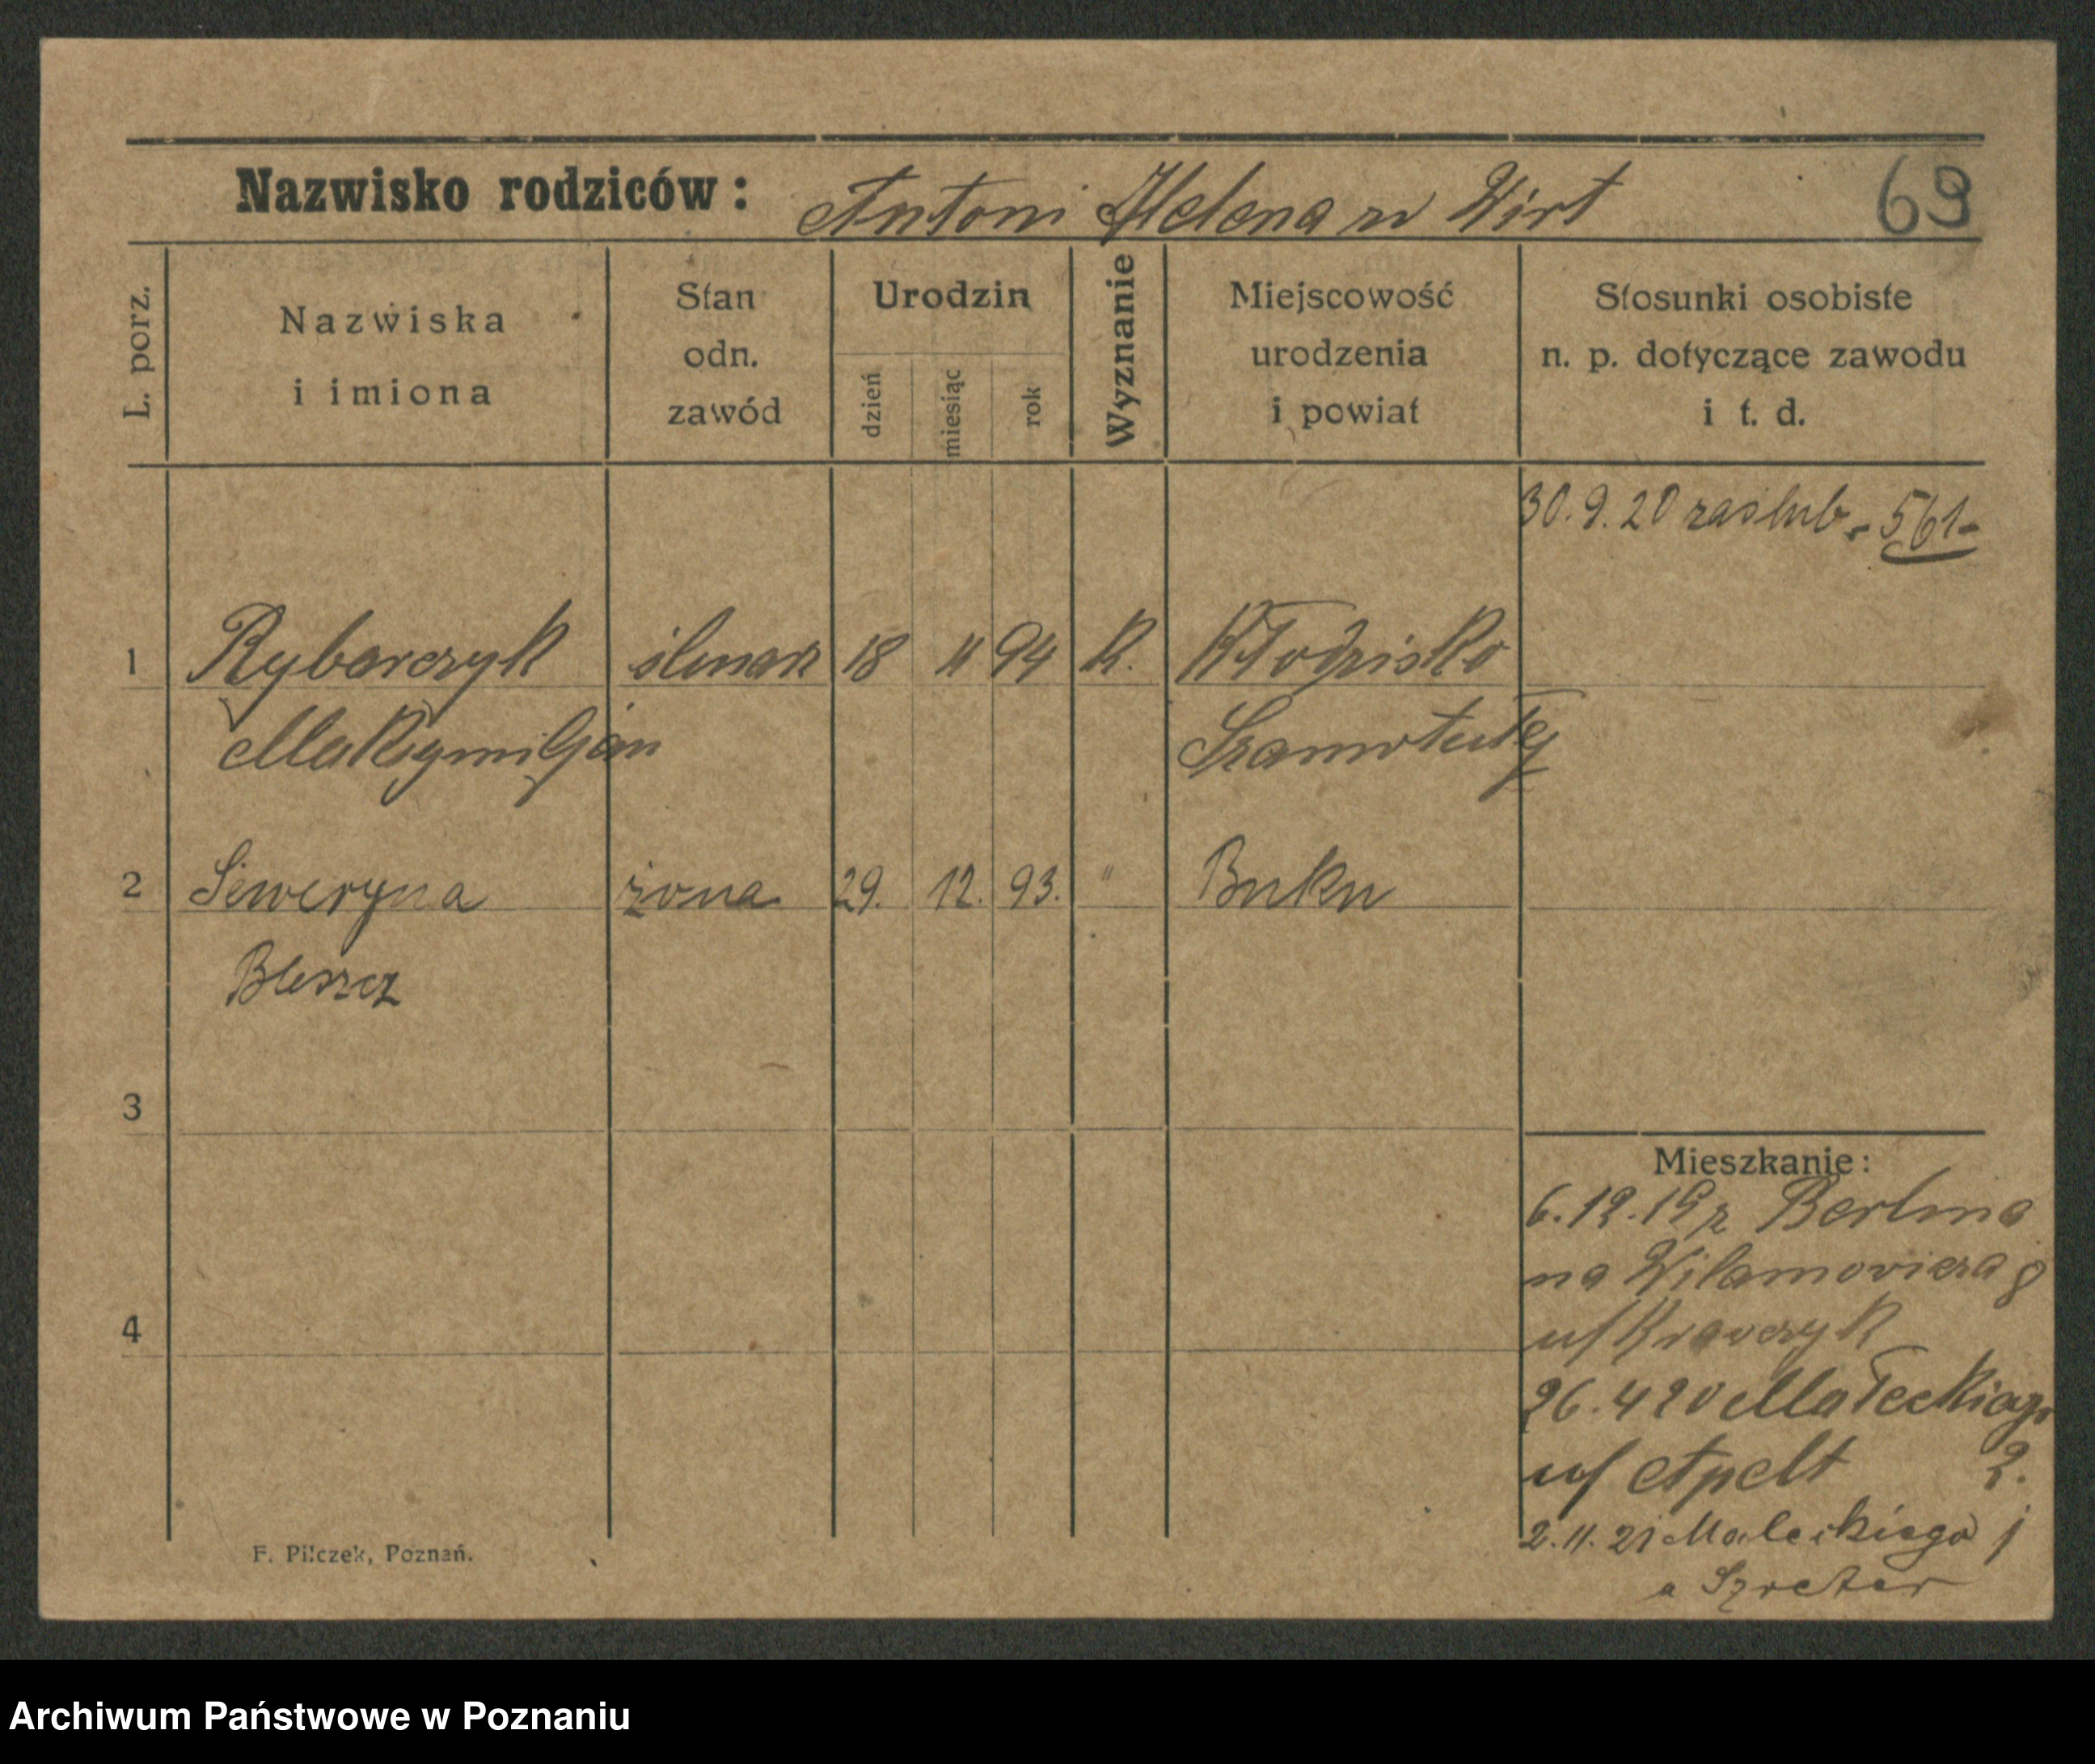 Nazwisko rodziców: Antoni Helena zd Wirt 69
L. porz.
Nazwiska
i imiona
Stan
odn.
zawód
Urodzin
dzień
miesiąc
rok
Wyznanie
Miejscowość
urodzenia
i powiat
Stosunki osobiste
n. p. dotyczące zawodu
i t. d.
30.9.20 zaślub. 561-
1 Rybarczyk 18 11 94 K. Kłodzisko
Maksymiljan Szamotuły
2 Seweryna żona 29. 12. 93. " Buku
Bleszcz
3
4
Mieszkanie:
6.12.19 z Berlina
na Wilamovicza 8
u/Kravczyk
26.4 20 Małeckiego
u/ Apelt 2.
2.11.21 Maleckiego
a Szreter
F. Pilczek, Poznań.
Archiwum Państwowe w Poznaniu